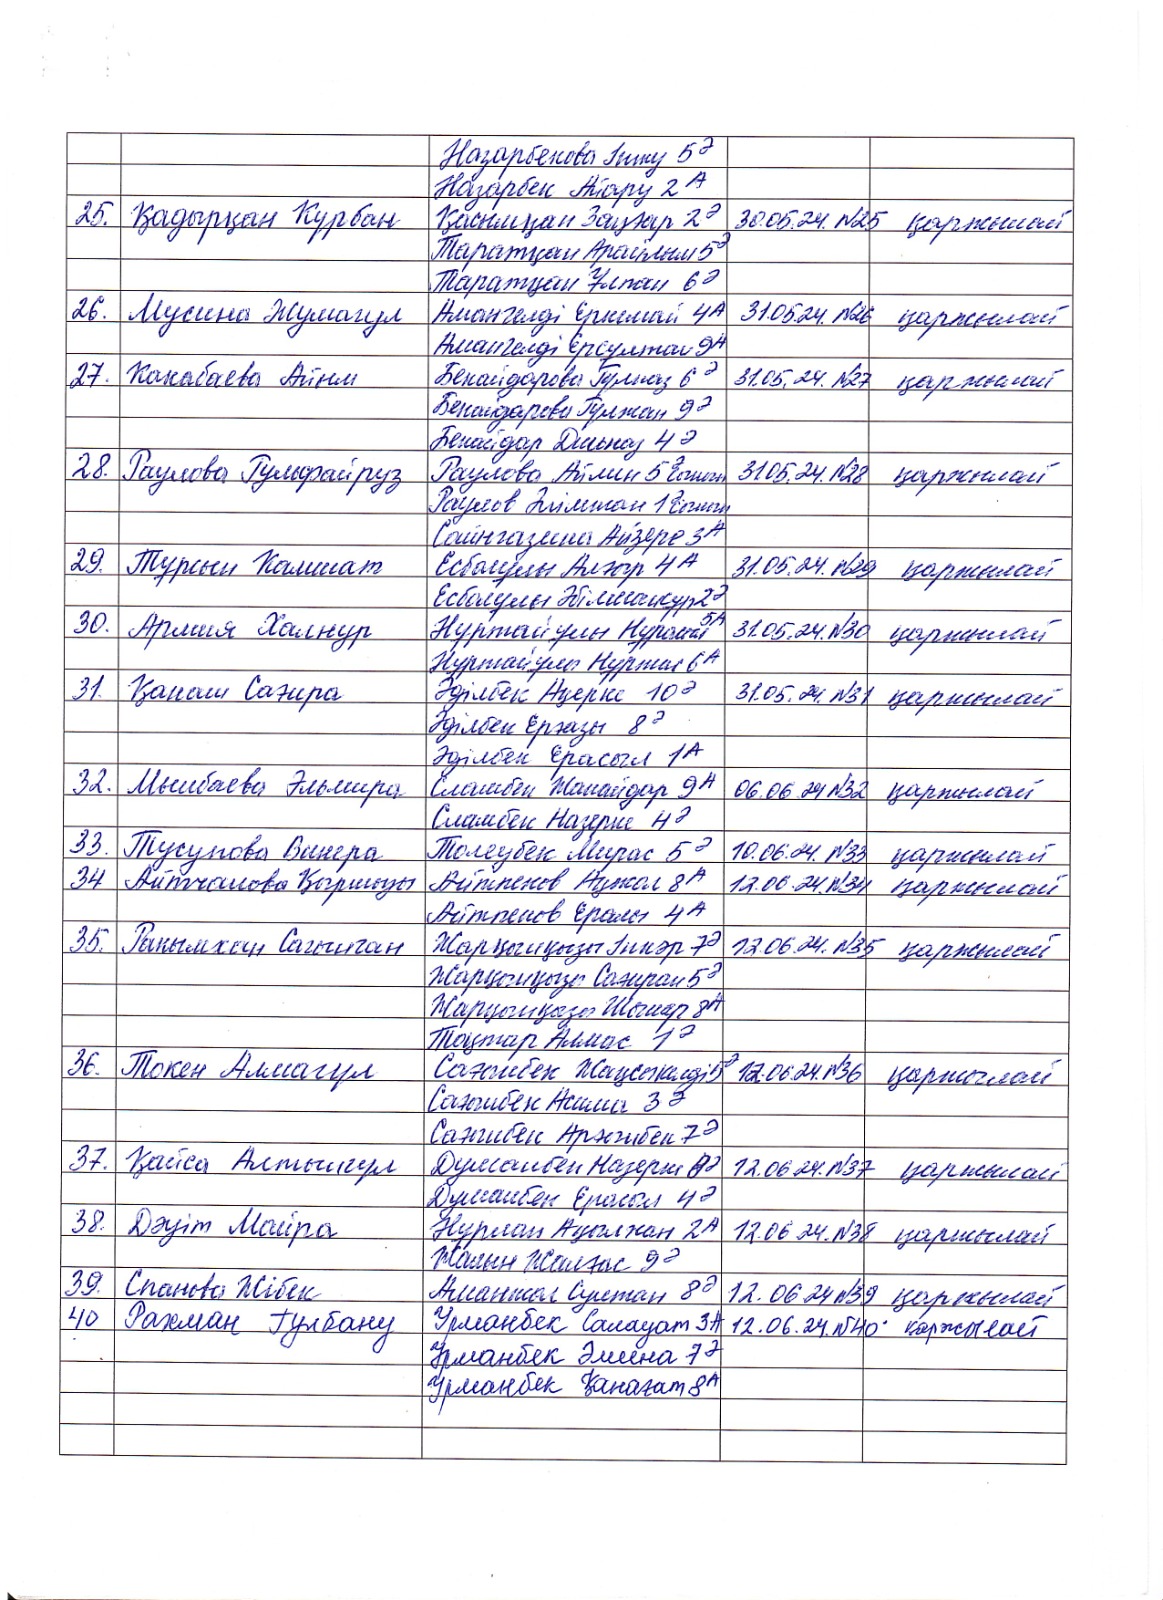 Назарбекова Інжу 5 Ә
Назарбек Айару 2 А
25. Қадырқан Курбан Қасымқан Заңғар 2 Ә 30.05.24. №25 қаржылай
Таратқан Арайлым 5 Ә
Таратқан Ұлпан 6 Ә
26. Мусина Жумагул Амангелді Еркемай 4 А 31.05.24. №26 қаржылай
Амангелді Ерсұлтан 9 А
27. Канабаева Айнм Бекайдарова Гулназ 6 Ә 31.05.24. №27 қаржылай
Бекайдарова Гүлжан 9 Ә
Бекайдар Дильназ 4 Ә
28. Раулова Гульфайруз Раулова Айлин 5 Ә 31.05.24. №28 қаржылай
Раулов Әлімжан 1 Ә
Сайнгазина Айзере 3 А
29. Турсын Калимат Есболұлы Алғыр 4 А 31.05.24. №29 қаржылай
Есболұлы Әбілмансур 2 Ә
30. Армия Халнур Нұртайұлы 5 А 31.05.24. №30 қаржылай
Нұртайұлы Нұртас 6 А
31. Қанаш Сағира Әділбек Ақерке 10 Ә 31.05.24. №31 қаржылай
Әділбек Ерғазы 8 Ә
Әділбек Ерасыл 1 А
32. Мынбаева Эльмира Сламбек Жанайдар 9 А 06.06.24 №32 қаржылай
Сламбек Назерке 4 Ә
33. Тусупова Винера Толеубек Мирас 5 Ә 10.06.24. №33 қаржылай
34 Айтчанова Қырмызы Айтпенов Ақжол 8 А 12.06.24. №34 қаржылай
Айтпенов Ералы 4 А
35. Рақымжан Сағынған Жарқынқызы Іңкәр 7 Ә 12.06.24. №35 қаржылай
Жарқынқызы 5 Ә
Жарқынқызы Шынар 8 А
Тоқтар Алмас 1 Ә
36. Токен Алмагул Сағынбек Жақсыкелді 5 Ә 12.06.24 №36 қаржылай
Сағынбек Асима 3 Ә
Сағынбек Арғынбек 7 Ә
37. Қайса Алтынгул Думанбек Назерке 8 Ә 12.06.24. №37 қаржылай
Думанбек Ерасыл 4 Ә
38. Дәуіт Майра Нурлан Ақылжан 2 А 12.06.24. №38 қаржылай
Жалын Жалғас 9 Ә
39. Спанова Жібек Аманжол Султан 8 Ә 12.06.24 №39 қаржылай
40 Рахман Гулбану Урманбек Салауат 3 А 12.06.24. №40 қаржылай
Урманбек Эмина 7 Ә
Урманбек Қанағат 8 А